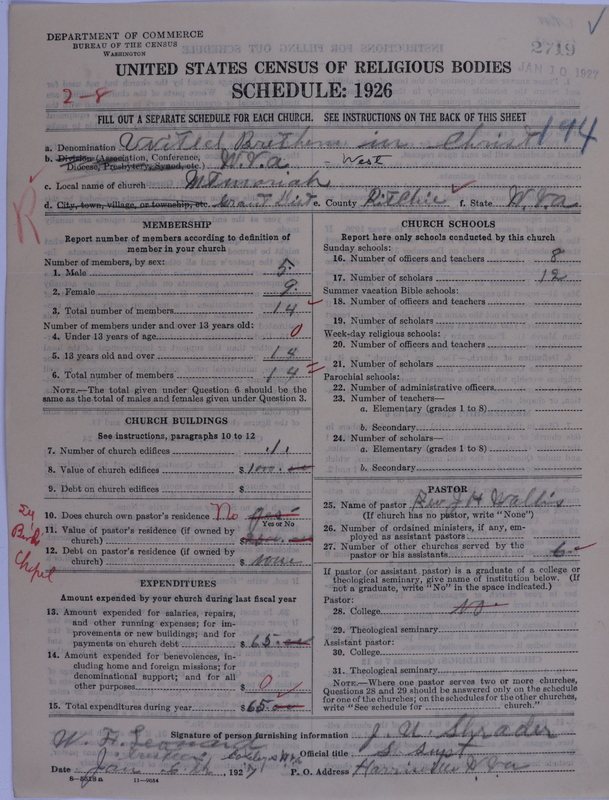 DEPARTMENT OF COMMERCE
BUREAU OF THE CENSUS
WASHINGTON
2719
JAN 10 1927
UNITED STATES CENSUS OF RELIGIOUS BODIES
2-8
SCHEDULE: 1926
FILL OUT A SEPARATE SCHEDULE FOR EACH CHURCH. SEE INSTRUCTIONS ON THE BACK OF THIS SHEET
a. Denomination United Brethern in Christ 194
b. Division (Association, Conference, Diocese, Presbytery, Synod, etc.) W.Va - West
c. Local name of church Mt moriah
d. City, town, village, or township, etc. Grant Dist. County Ritchie f. State W.Va
R
MEMBERSHIP
Report number of members according to definition of
member in your church
Number of members, by sex:
1. Male 5
2. Female 9
3. Total number of members 14
Number of members under and over 13 years old:
4. Under 13 years of age 0
5. 13 years old and over 14
6. Total number of members 14
NOTE.—The total given under Question 6 should be
same as the total of males and females given under Question 3.
CHURCH BUILDINGS
See instructions, paragraphs 10 to 12
7. Number of church edifices 1
8. Value of church edifices $1000.00
9. Debt on church edifices $
10. Does church own pastor's residence No yes
Yes or No
11. Value of pastor's residence (if owned by
church) $
12. Debt on pastor's residence (if owned by
church) $ none
Chapel
EXPENDITURES
Amount expended by your church during last fiscal year
13. Amount expended for salaries, repairs,
and other running expenses; for im-
provements or new buildings; and for
payments on church debt $65.00
14. Amount expended for benevolences, in-
cluding home and foreign missions; for
denominational support; and for all
other purposes $ 0
15. Total expenditures during year $65.00
CHURCH SCHOOLS
Report here only schools conducted by this church
Sunday schools:
16. Number of officers and teachers 8
17. Number of scholars 12
Summer vacation Bible schools:
18. Number of officers and teachers
19. Number of scholars
Week-day religious schools:
20. Number of officers and teachers
21. Number of scholars
Parochial schools:
22. Number of administrative officers
23. Number of teachers—
a. Elementary (grades 1 to 8)
b. Secondary
24. Number of scholars—
a. Elementary (grades 1 to 8)
b. Secondary
PASTOR
25. Name of pastor Rev J H Wallis
(If church has no pastor, write "None")
26. Number of ordained ministers, if any, em-
ployed as assistant pastors
27. Number of other churches served by the
pastor or his assistants 6
If pastor (or assistant pastor) is a graduate of a college or
theological seminary, give name of institution below. (If
not a graduate, write "No" in the space indicated.)
Pastor:
28. College no
29. Theological seminary
Assistant pastor:
30. College
31. Theological seminary
NOTE.—Where one pastor serves two or more churches,
Questions 28 and 29 should be answered only on the schedule
for one of the churches; on the schedules for the other churches,
write "See schedule for church."
Signature of person furnishing information J. N. Shrader
W. H. Leonard
Official title S. Supt
Date Jan 6 th, 1927 P. O. Address Harrisville W Va
8-5519a 11-9054